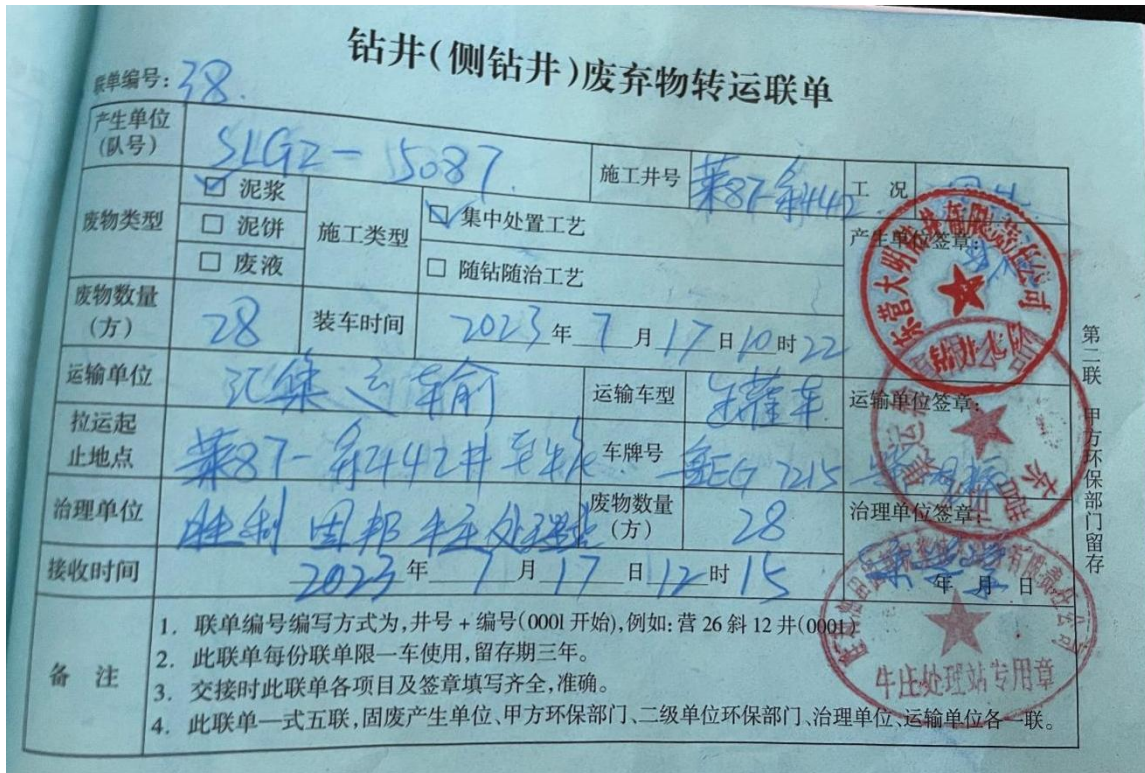 钻井(侧钻井)废弃物转运联单
联单编号:38.
产生单位(队号) SLGZ-15087. 施工井号 莱87-斜442 工况
废物类型 ☑ 泥浆 □ 泥饼 □ 废液 施工类型 ☑ 集中处置工艺 □ 随钻随治工艺 产生单位签章:
废物数量(方) 28 装车时间 2023年7月17日10时22
运输单位 汇集运输 运输车型 罐车 运输单位签章:
拉运起止地点 莱87-斜2442井至牛庄 车牌号 鲁EG7215
治理单位 胜利固邦牛庄处理站 废物数量(方) 28 治理单位签章:
接收时间 2023年7月17日12时15 年 月 日
备注
1. 联单编号编写方式为,井号+编号(0001开始),例如:营26斜12井(0001)
2. 此联单每份联单限一车使用,留存期三年。
3. 交接时此联单各项目及签章填写齐全,准确。
4. 此联单一式五联,固废产生单位、甲方环保部门、二级单位环保部门、治理单位、运输单位各一联。
第二联 甲方环保部门留存
东营大明钻井有限责任公司
牛庄处理站专用章